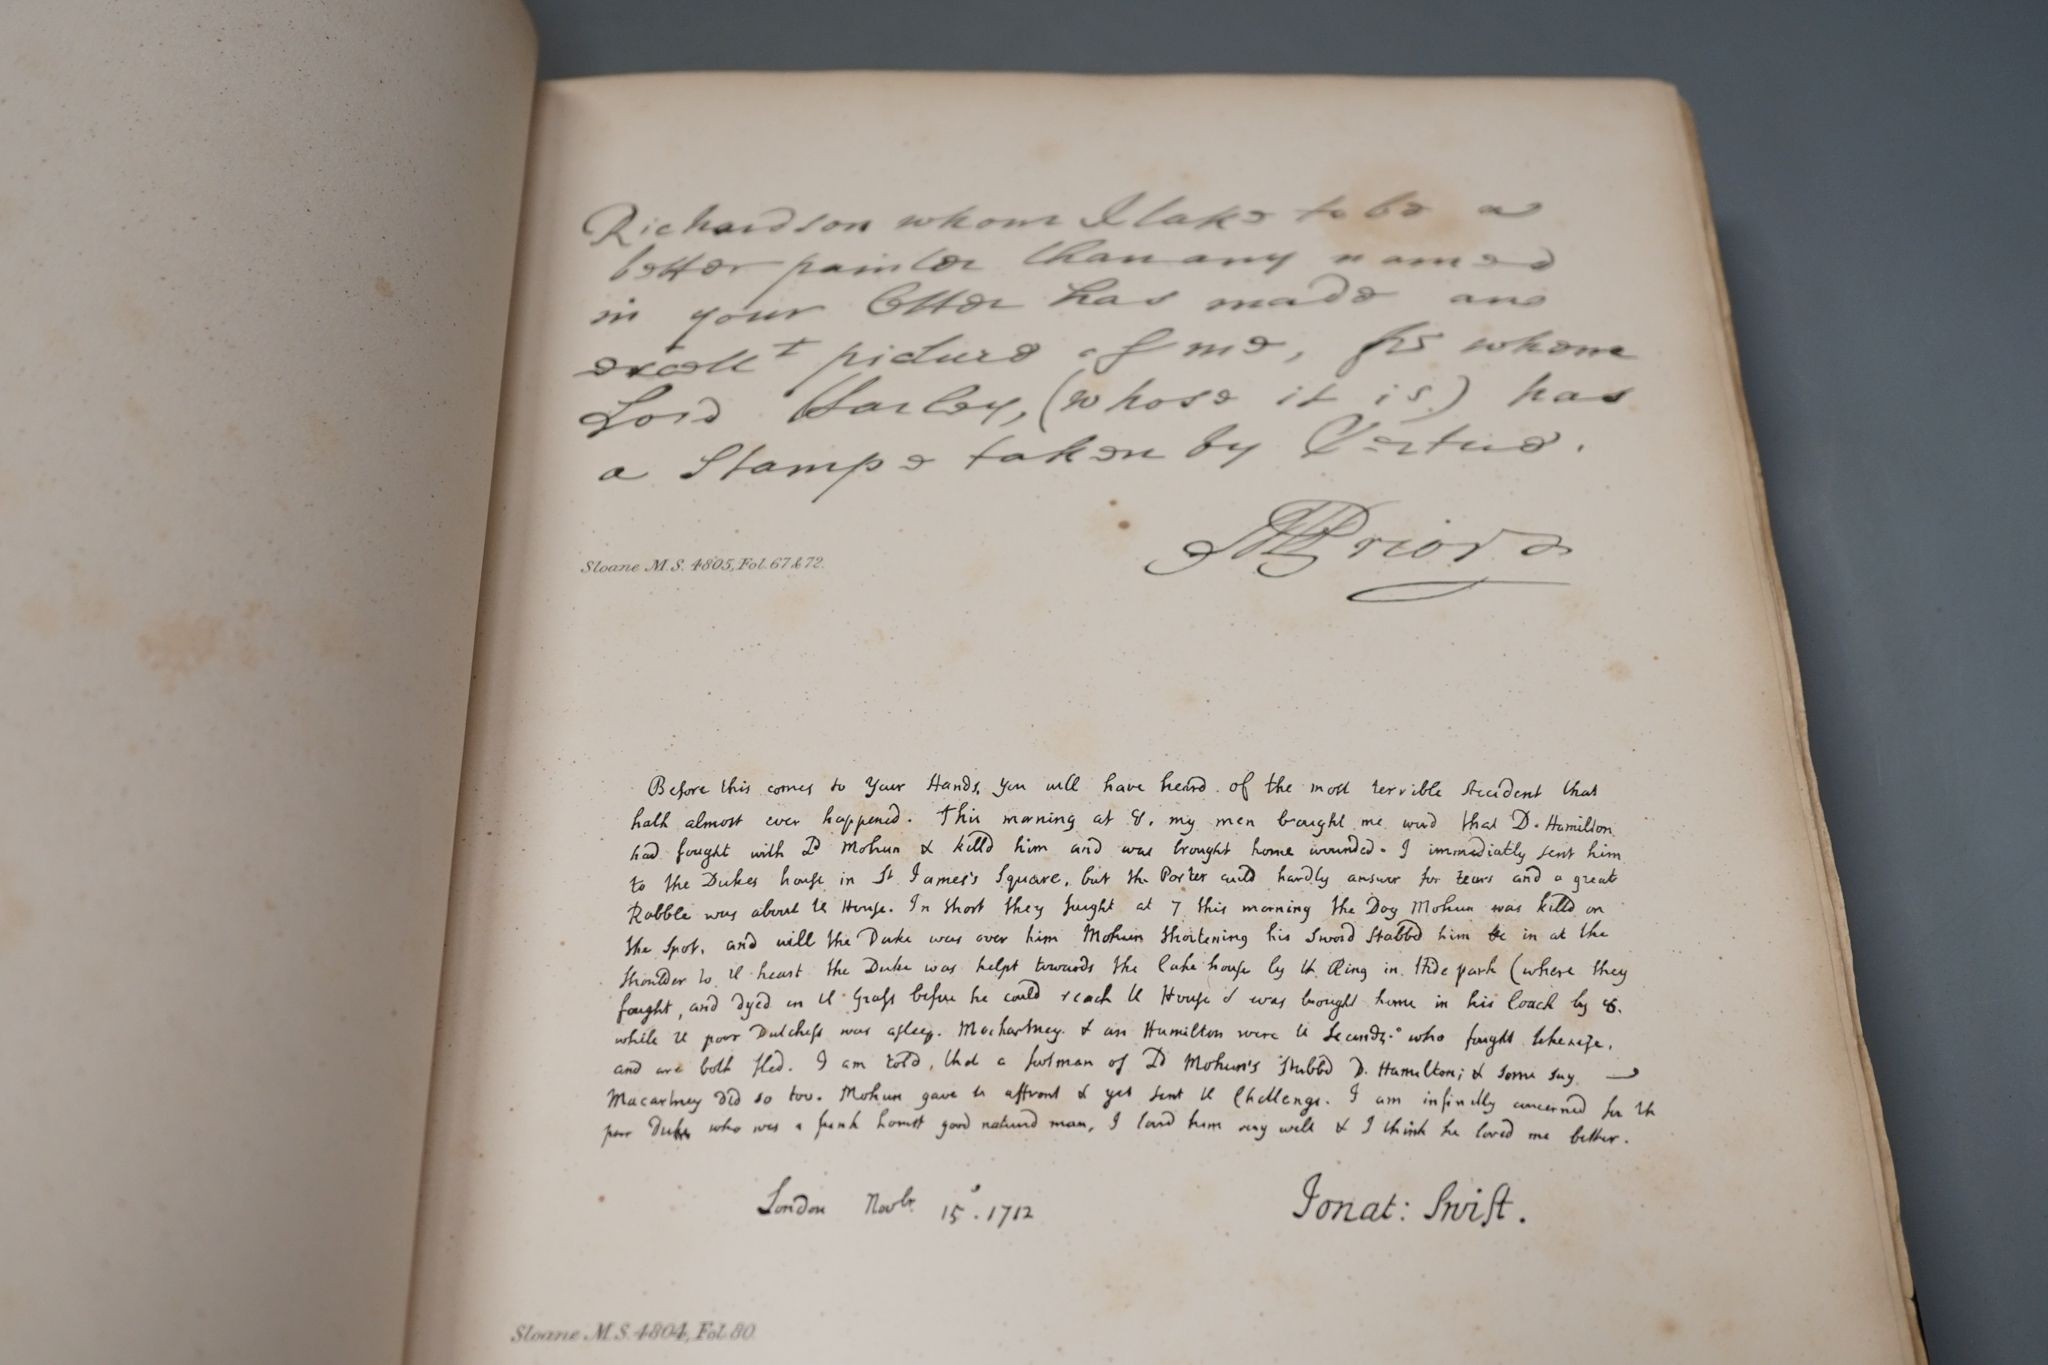 Richardson whom I take to be a
better painter than any named
in your letter has made an
excellt picture of me, from whome
Lord Harley, (whose it is) has
a Stampe taken by Vertue.
MPrior
Sloane M.S. 4805, Fol. 67 & 72.
Before this comes to Your Hands, you will have heard of the most terrible Accident that
hath almost ever happened. This morning at 8. my men brought me word that D. Hamilton
had fought with Ld Mohun & killd him and was brought home wounded. I immediatly sent him
to the Dukes house in St James's Square, but the Porter could hardly answer for tears and a great
Rabble was about the House. In short they fought at 7 this morning the Dog Mohun was killd on
the spot, and will the Duke was over him Mohun shortening his Sword stabbd him in at the
shoulder to the heart the Duke was helpt towards the Cake house by the Ring in Hide park (where they
fought, and dyed on the Grass before he could reach the House & was brought home in his Coach by 8.
while the poor Dutchess was asleep. Mackartney & on Hamilton were the Seconds who fought likewise,
and are both fled. I am told, that a footman of Ld Mohun's stabbd D. Hamilton; & some say
Macartney did so too. Mohun gave the affront & yet sent the Challenge. I am infinitly concerned for the
poor Duke who was a frank honest good natured man, I loved him very well & I think he loved me better.
London Novbr 15. 1712
Jonat: Swift.
Sloane M.S. 4804, Fol. 80